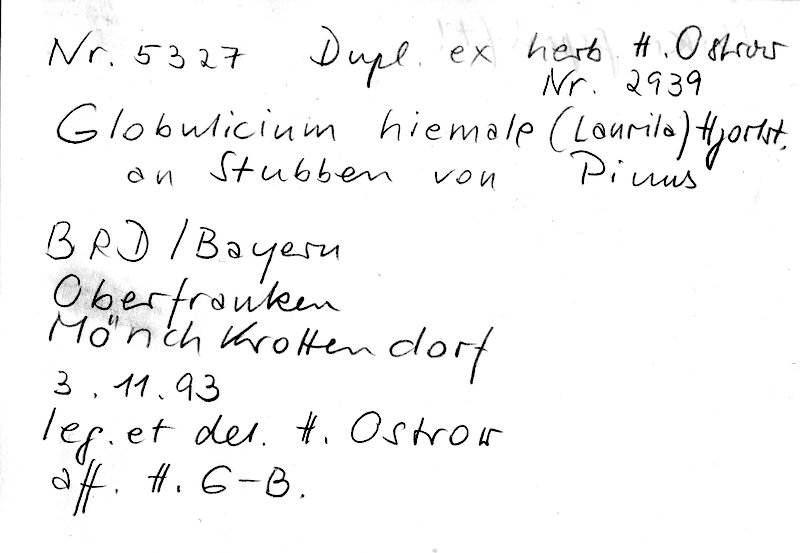 Nr. 5327 Dupl. ex herb H. Ostrow
Nr. 2939
Globulicium hiemale (Laurila) Hjortst.
an Stubben von Pinus
BRD/Bayern
Oberfranken
Mönchkrottendorf
3.11.93
leg. et det. H. Ostrow
aff. H. G-B.